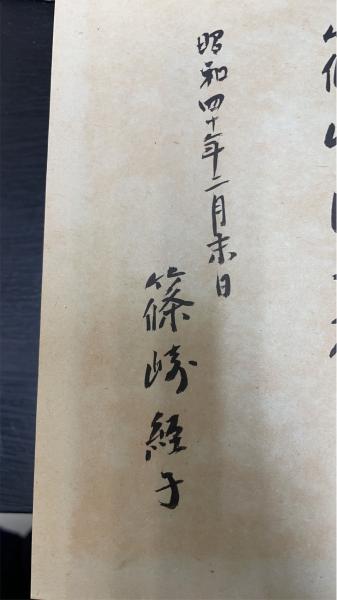 昭和四十年二月末日
篠崎經子